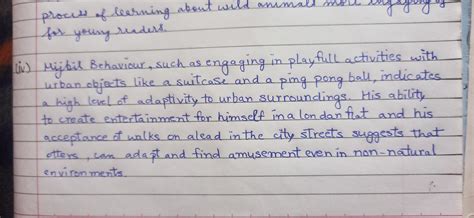 process of learning about wild animals more engaging
for young readers.
(iv) Mijbil Behaviour, such as engaging in playfull activities with
urban objects like a suitcase and a ping pong ball, indicates
a high level of adaptivity to urban surroundings. His ability
to create entertainment for himself in a london flat and his
acceptance of walks on a lead in the city streets suggests that
otters, can adapt and find amusement even in non-natural
environments.